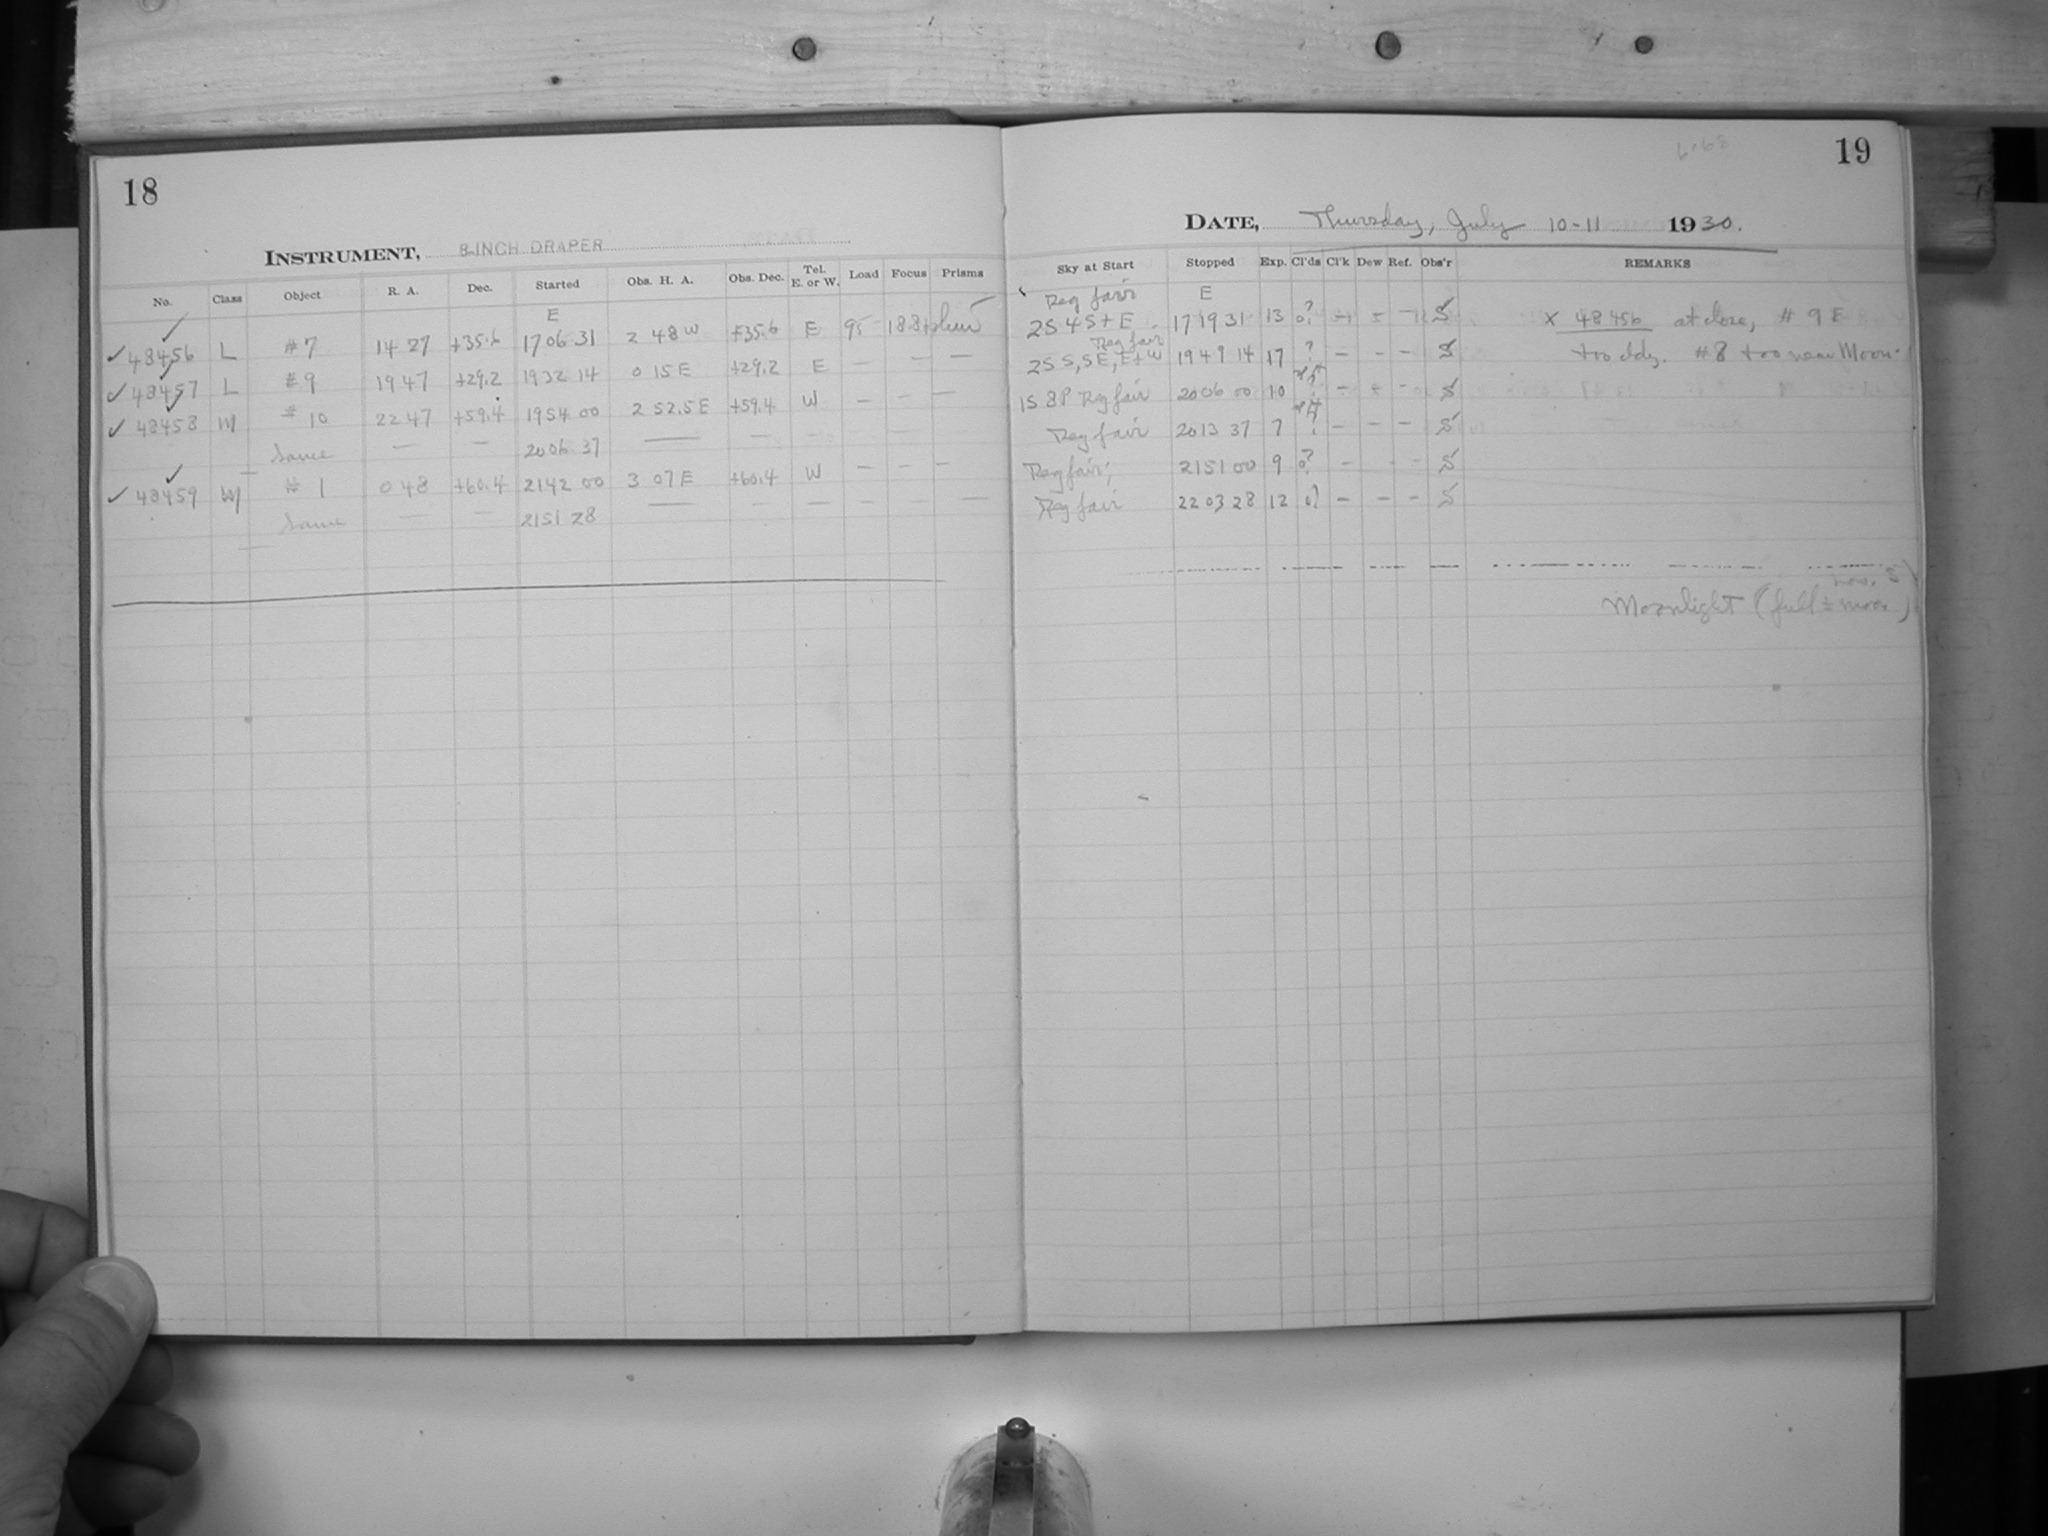 18
INSTRUMENT, 8-INCH DRAPER
No. Class Object R. A. Dec. Started Obs. H. A. Obs. Dec. Tel. E. or W. Load Focus Prisms
E
✓ 48456 L #7 14 27 +35.6 17 06 31 2 48 W +35.6 E 95
✓ 48457 L #9 19 47 +29.2 19 32 14 0 15 E +29.2 E — —
✓ 48458 M #10 22 47 +59.4 19 54 00 2 52.5 E +59.4 W — — —
Same — — 20 06 37 — — — —
✓ 48459 M #1 0 48 +60.4 21 42 00 3 07 E +60.4 W — — —
Same — — 21 51 28 — — — — — —
19
DATE, Thursday, July 10-11 1930.
Sky at Start Stopped Exp. Cl'ds Cl'k Dew Ref. Obs'r REMARKS
Reg fair E
2S 4S + E 17 19 31 13 0? S x 48456 at close, #9 E
Reg fair
2S S, SE, E+W 19 49 14 17 ? — — — S too cldy. #8 too near Moon.
1S 8P Reg fair 20 06 00 10 S
Reg fair 20 13 37 7 ? — — — S
Reg fair; 21 51 00 9 0? — - - S
Reg fair 22 03 28 12 0? — — — S
Moonlight (full ± moon)